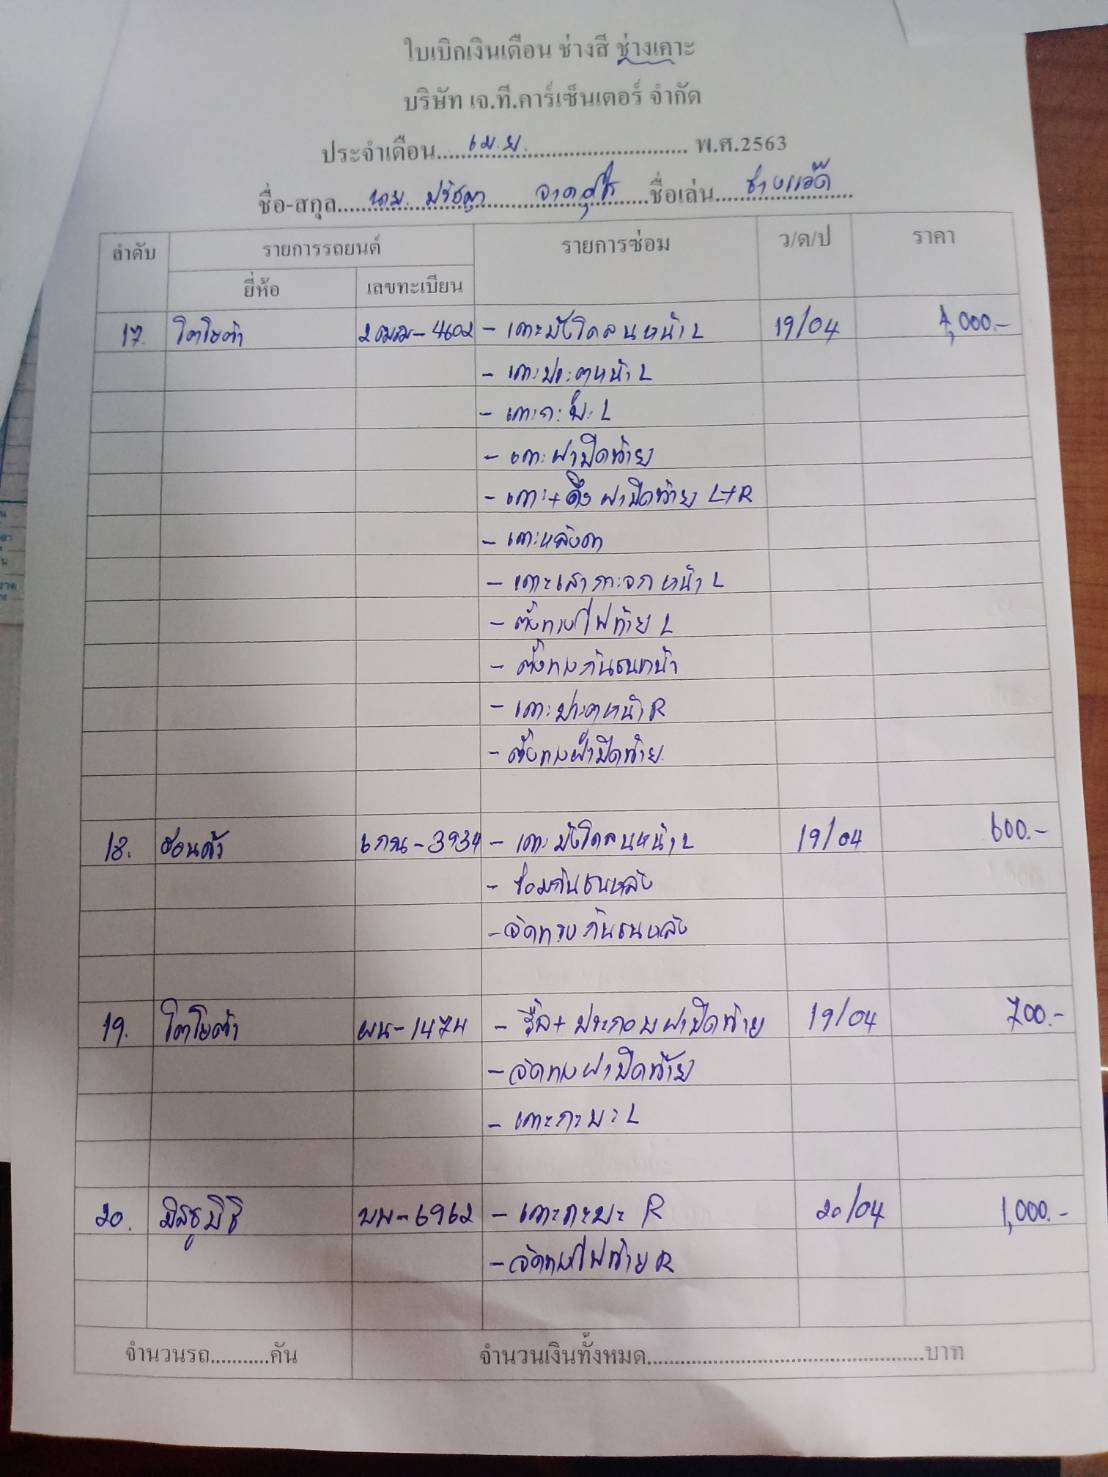 ใบเบิกเงินเดือน ช่างสี ช่างเคาะ
บริษัท เจ.ที.คาร์เซ็นเตอร์ จำกัด
ประจำเดือน.....เม.ย......พ.ศ.2563
ชื่อ-สกุล.....ชื่อเล่น.....ช่างแอ๊ด.....
ลำดับ รายการรถยนต์ รายการซ่อม ว/ด/ป ราคา
ยี่ห้อ เลขทะเบียน
17. โตโยต้า 2ฒฒ-4602 - เคาะบังโคลนหน้า L 19/04 4,000.-
- เคาะประตูหน้า L
- เคาะกะบะ L
- เคาะฝาปิดท้าย
- เคาะ+ดึง ฝาปิดท้าย L+R
- เคาะหลังคา
- เคาะเสากระจกหน้า L
- ตั้งทางไฟท้าย L
- ตั้งทางกันชนหน้า
- เคาะประตูหน้า R
- ตั้งทางฝาปิดท้าย
18. ฮอนด้า 6กน-3934 - เคาะบังโคลนหน้า L 19/04 600.-
- ซ่อมกันชนหลัง
- จัดทรงกันชนหลัง
19. โตโยต้า ผน-1474 - รื้อ+ประกอบฝาปิดท้าย 19/04 700.-
- จัดทางฝาปิดท้าย
- เคาะกะบะ L
20. มิตซูบิชิ บพ-6962 - เคาะกะบะ R 20/04 1,000.-
- จัดทางไฟท้าย R
จำนวนรถ...........คัน จำนวนเงินทั้งหมด.....บาท